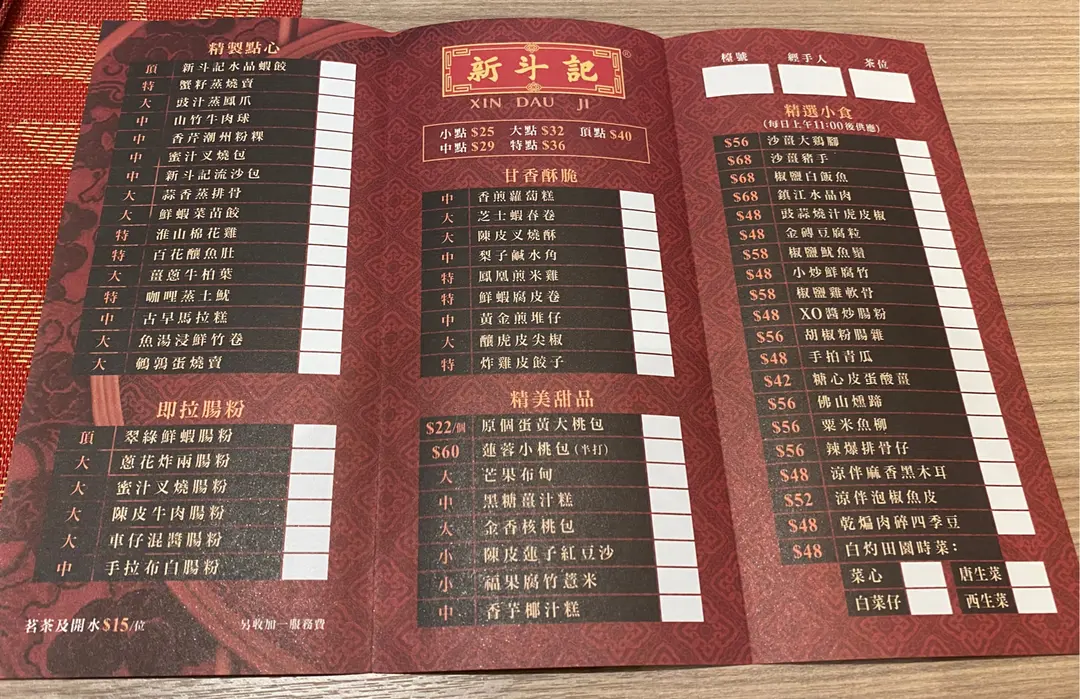 精製點心
頂 新斗記水晶蝦餃
特 蟹籽蒸燒賣
大 豉汁蒸鳳爪
中 山竹牛肉球
中 香芹潮州粉粿
中 蜜汁叉燒包
中 新斗記流沙包
大 蒜香蒸排骨
大 鮮蝦菜苗餃
特 淮山棉花雞
特 百花釀魚肚
大 薑蔥牛柏葉
特 咖喱蒸土魷
中 古早馬拉糕
大 魚湯浸鮮竹卷
大 鵪鶉蛋燒賣
即拉腸粉
頂 翠綠鮮蝦腸粉
大 蔥花炸兩腸粉
大 蜜汁叉燒腸粉
大 陳皮牛肉腸粉
大 車仔混醬腸粉
中 手拉布白腸粉
茗茶及開水$15/位 另收加一服務費
新斗記®
XIN DAU JI
小點 $25 大點 $32 頂點 $40
中點 $29 特點 $36
甘香酥脆
中 香煎蘿蔔糕
大 芝士蝦春卷
大 陳皮叉燒酥
中 梨子鹹水角
特 鳳凰煎米雞
特 鮮蝦腐皮卷
中 黃金煎堆仔
大 釀虎皮尖椒
特 炸雞皮餃子
精美甜品
$22/個 原個蛋黃大桃包
$60 蓮蓉小桃包(半打)
大 芒果布甸
中 黑糖薑汁糕
大 金香核桃包
小 陳皮蓮子紅豆沙
小 福果腐竹薏米
中 香芋椰汁糕
檯號 經手人 茶位
精選小食
(每日上午11:00後供應)
$56 沙薑大鷄腳
$68 沙薑豬手
$68 椒鹽白飯魚
$68 鎮江水晶肉
$48 豉蒜燒汁虎皮椒
$48 金磚豆腐粒
$58 椒鹽魷魚鬚
$48 小炒鮮腐竹
$58 椒鹽雞軟骨
$48 XO醬炒腸粉
$56 胡椒粉腸雞
$48 手拍青瓜
$42 糖心皮蛋酸薑
$56 佛山燻蹄
$56 粟米魚柳
$56 辣爆排骨仔
$48 涼伴麻香黑木耳
$52 涼伴泡椒魚皮
$48 乾煸肉碎四季豆
$48 白灼田園時菜：
菜心 唐生菜
白菜仔 西生菜